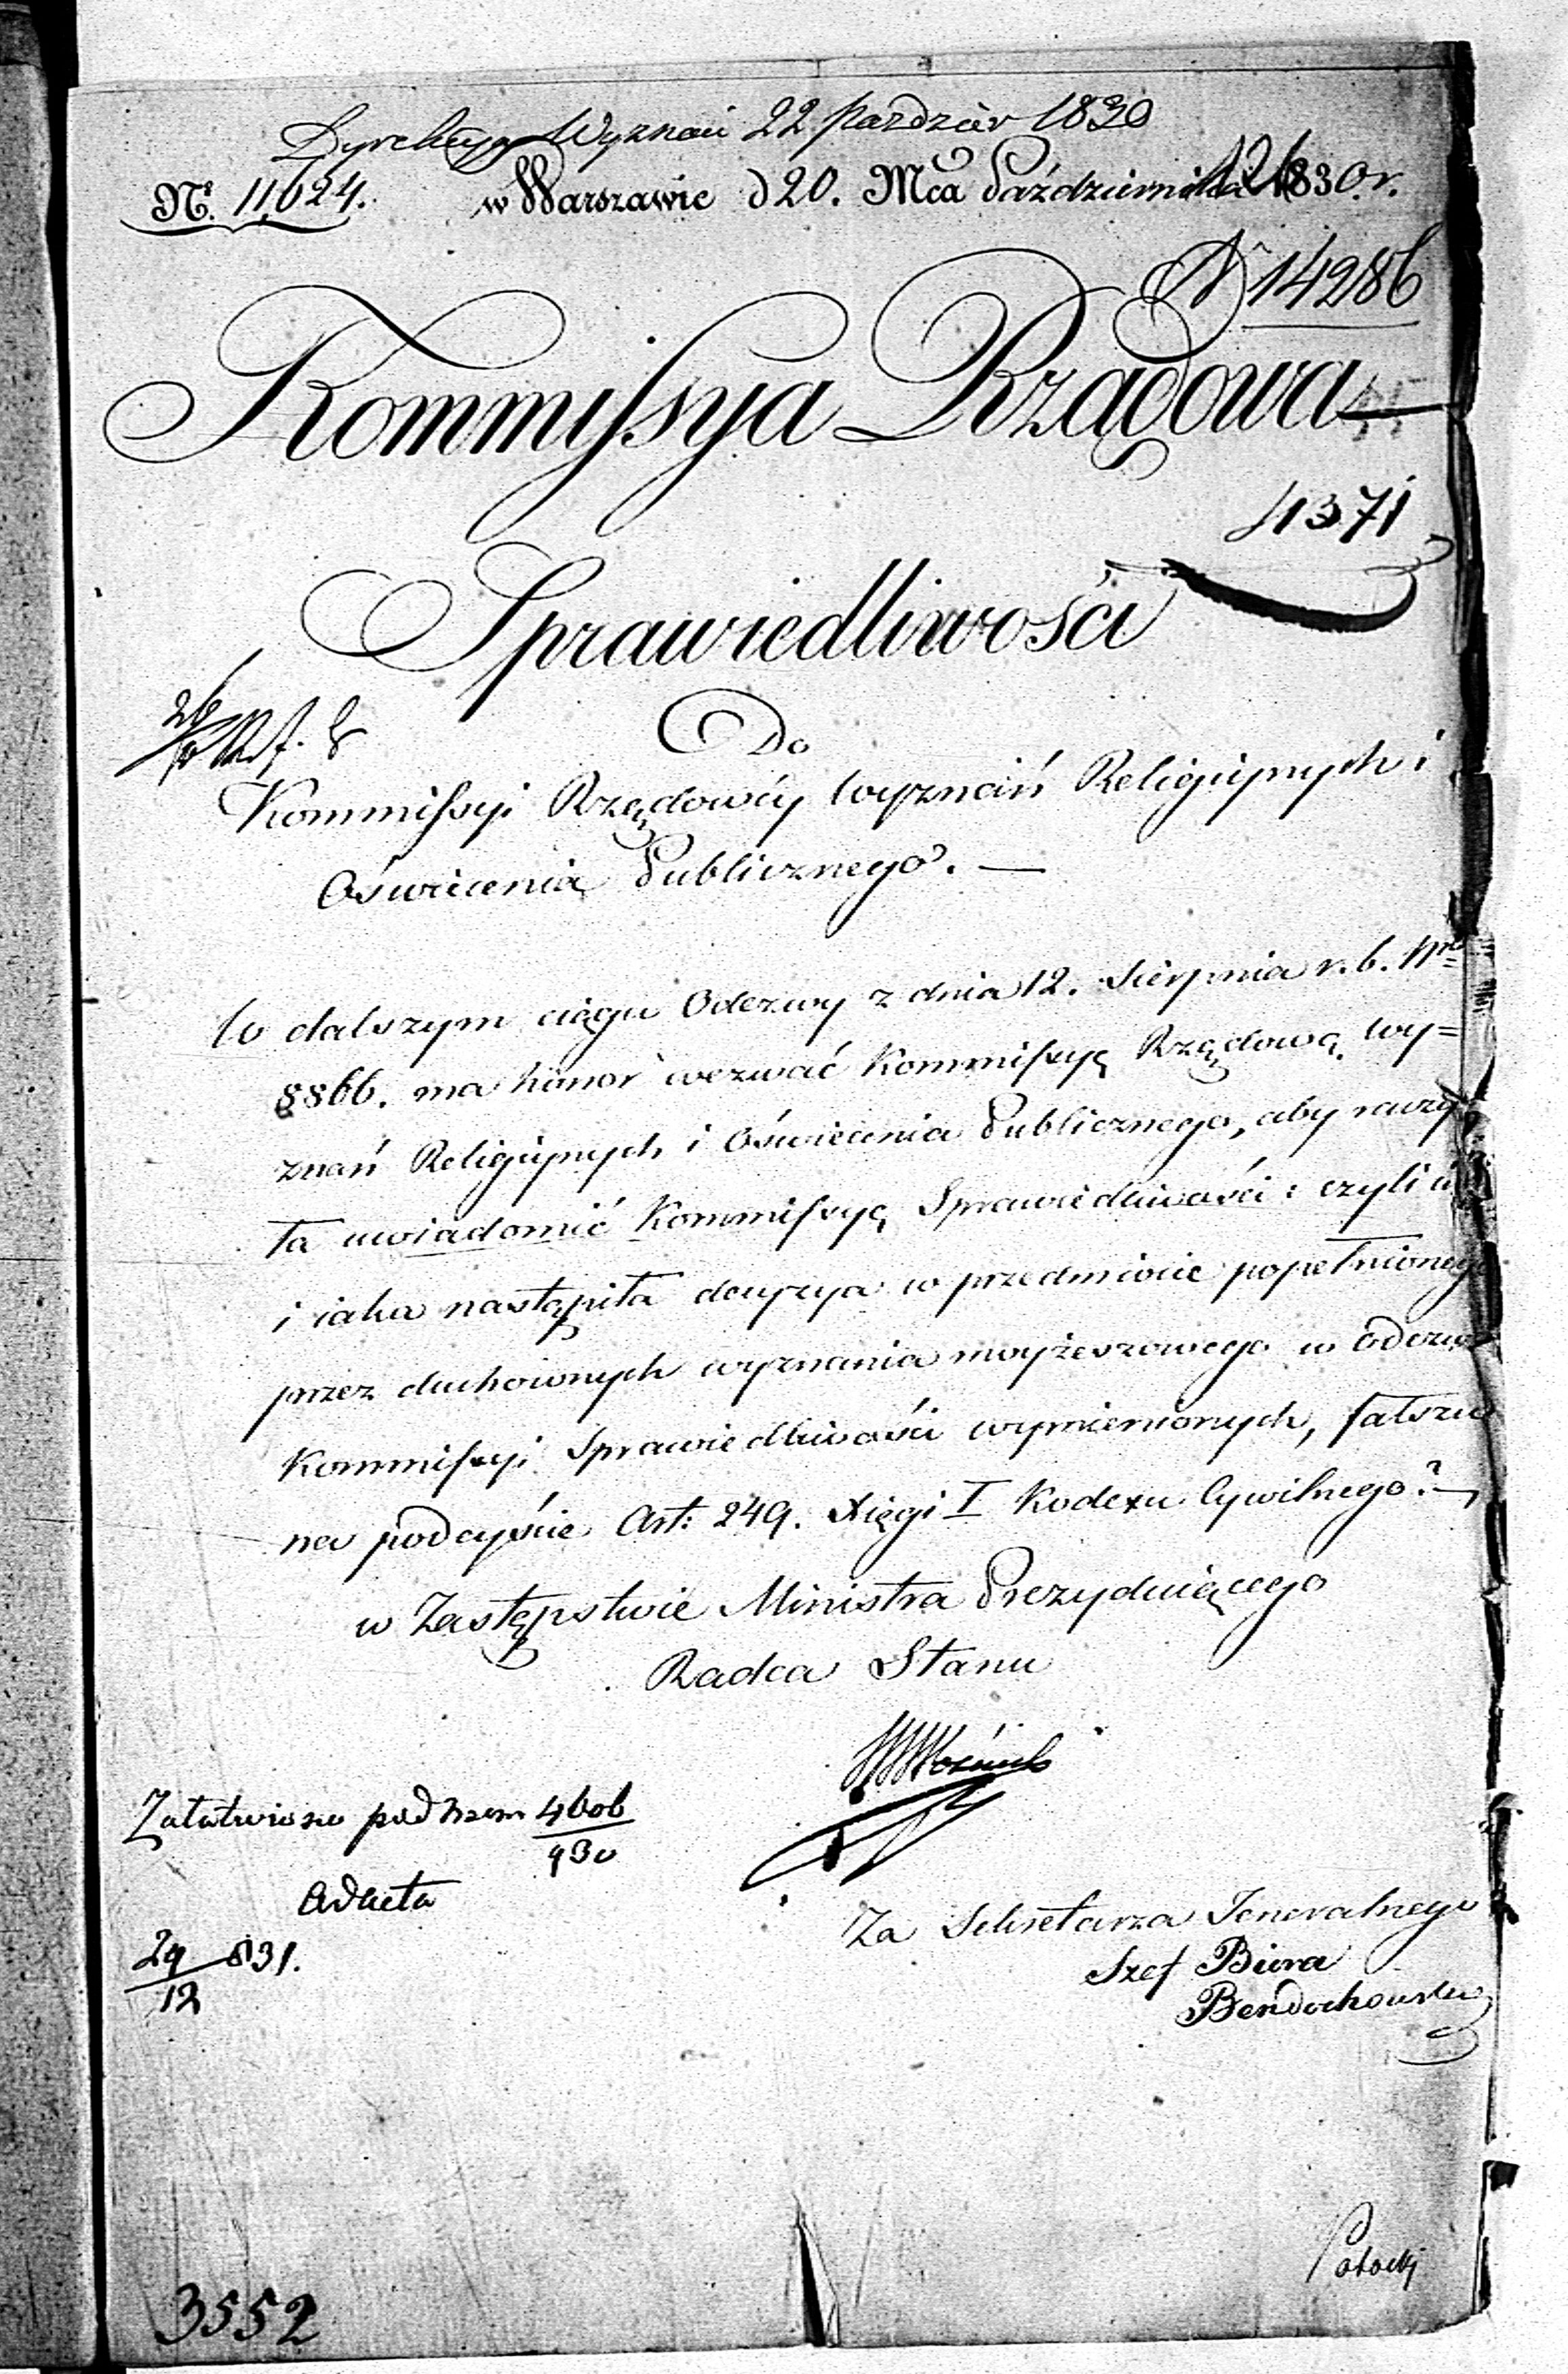 Dyrekcya Wyznań 22 Pazdzier 1830
№. 11,624. w Warszawie d 20. Mca Października 1830 r.
N 14286
Kommissya Rządowa
4371
Sprawiedliwości
Do
Kommissyi Rządowéy Wyznań Religiynych i
Oświecenia Publicznego. —
W dalszym ciągu Odezwy z dnia 12. Sierpnia r. b. Nro
8866. ma honor wezwać Kommissyę Rządową Wy=
znań Religiynych i Oświecenia Publicznego, aby raczy
ta uwiadomić Kommissyę Sprawiedliwości: czyli i
i iaka nastąpiła decyzya w przedmiocie popełnionego
przez duchownych wyznania moyżeszowego w odezwie
Kommissyi Sprawiedliwości wymienionych, fałszu
na podeyście Art: 249. Xięgi I Kodexu Cywilnego? —
w Zastępstwie Ministra Prezyduiącego
Radca Stanu
Woźnicki
Załatwiono pod Nrem 4606
930
Adacta
29 831.
12
Za Sekretarza Jeneralnego
Szef Biura
Bendochowski
Potocki
3552